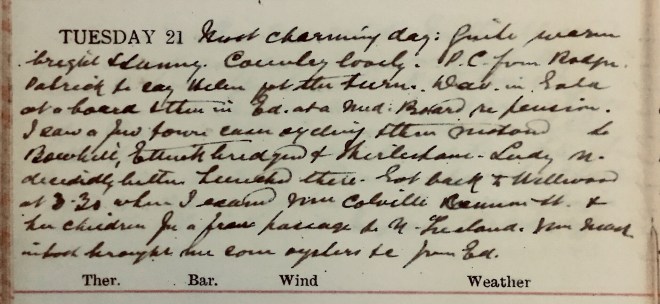 TUESDAY 21 Most charming day: Quite warm
bright & sunny. Country lovely. P.C. from Rodgr.
Patrick to say Helen got the turn. Dav. in Gala
at a board & then in Ed. at a Med: Board re pension.
I saw a few town cases cycling & then motored to
Bowhill, Ettrickbridgend & Thirlestane. Lady N.
decidedly better. Lunched there. Got back to Wellwood
at 3-30 when I examd Mrs Colville St. &
her children for a free passage to N. Zealand. Mrs
brought me some oysters &c from Ed.
Ther. Bar. Wind Weather